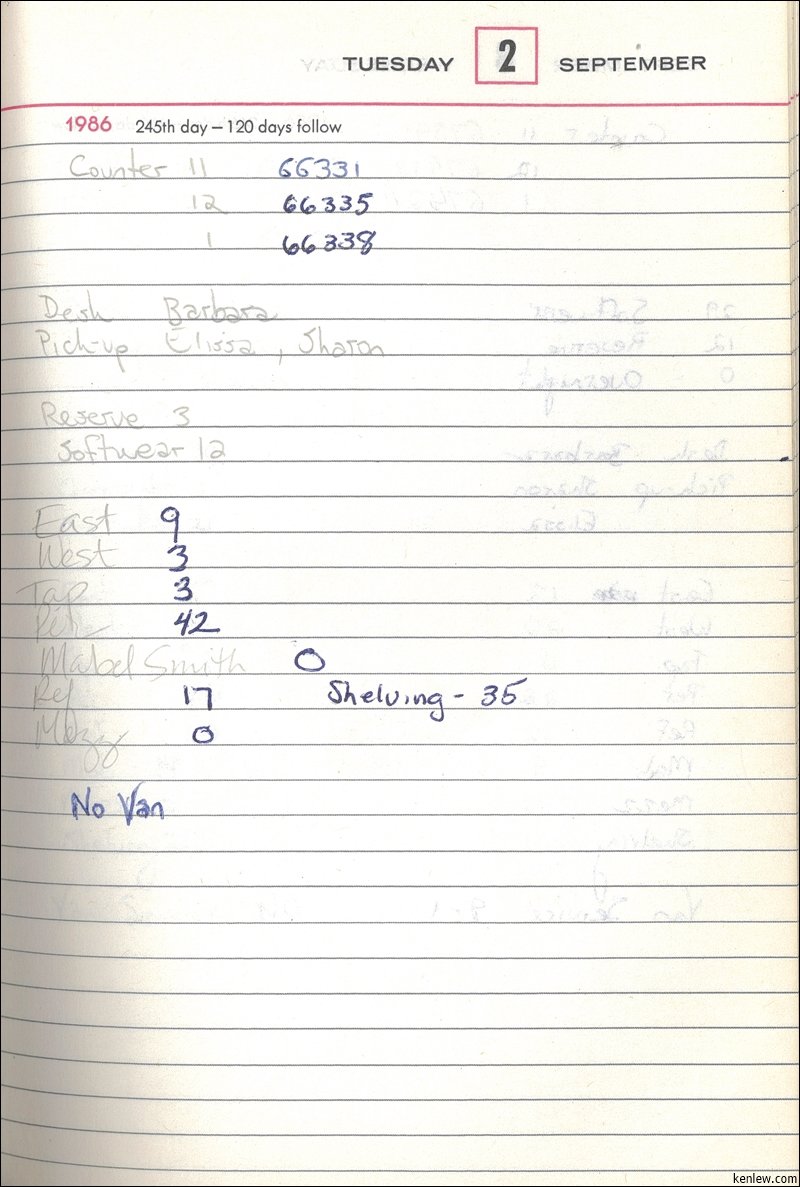 TUESDAY 2 SEPTEMBER
1986 245th day – 120 days follow
Counter 11 66331
12 66335
1 66338
Desk Barbara
Pick-up Elissa, Sharon
Reserve 3
Softwear 12
East 9
West 3
Tap 3
42
Mabel Smith 0
Ref 17 Shelving - 35
Mezz 0
No Van
kenlew.com